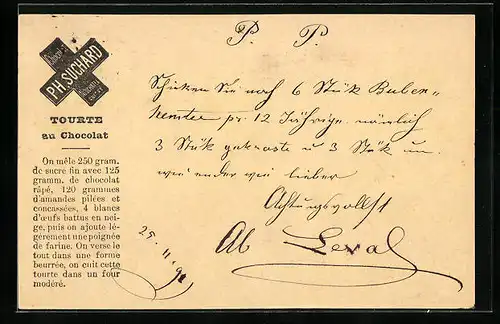 PH. SUCHARD
TOURTE
au Chocolat
On mêle 250 gram.
de sucre fin avec 125
gramm. de chocolat
râpé, 120 grammes
d'amandes pilées et
concassées, 4 blancs
d'œufs battus en nei-
ge, puis on ajoute lé-
gèrement une poignée
de farine. On verse le
tout dans une forme
beurrée, on cuit cette
tourte dans un four
modéré.
P. P.
Schiken Sie noch 6 Stük Buben-
pr. 12 Jährige nämlich
3 Stük u 3 Stük
lieber
Achtungsvollst
25. 11. 91
Ab Leval